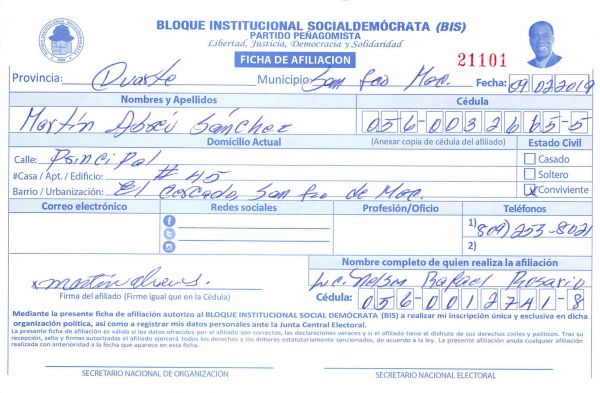 BLOQUE INSTITUCIONAL SOCIALDEMÓCRATA (BIS)
PARTIDO PEÑAGOMISTA
Libertad, Justicia, Democracia y Solidaridad
FICHA DE AFILIACION
21101
Provincia: Duarte Municipio: San Fco Mac. Fecha: 09 02 2019
Nombres y Apellidos Cédula
Martín Sánchez 056-0032665-5
Domicilio Actual (Anexar copia de cédula del afiliado) Estado Civil
Calle: Principal Casado
#Casa / Apt. / Edificio: # 45 Soltero
Barrio / Urbanización: El San Fco de Mac. x Conviviente
Correo electrónico Redes sociales Profesión/Oficio Teléfonos
1) 809) 253-8021
2)
Nombre completo de quien realiza la afiliación
x Lic. Nelson Rafael Rosario
Firma del afiliado (Firme igual que en la Cédula) Cédula: 056-0012741-8
Mediante la presente ficha de afiliación autorizo al BLOQUE INSTITUCIONAL SOCIAL DEMÓCRATA (BIS) a realizar mi inscripción única y exclusiva en dicha
organización política, así como a registrar mis datos personales ante la Junta Central Electoral.
La presente ficha de afiliación es válida si los datos ofrecidos por el afiliado son correctos, las declaraciones veraces y si el afiliado tiene el disfrute de sus derechos civiles y políticos. Tras su
recepción, sello y firmas autorizadas el afiliado ejercerá todos los derechos y los deberes estatutariamente sancionados, de acuerdo a la ley. La presente afiliación anula cualquier afiliación
realizada con anterioridad a la fecha que aparece en esta ficha.
SECRETARIO NACIONAL DE ORGANIZACIÓN SECRETARIO NACIONAL ELECTORAL